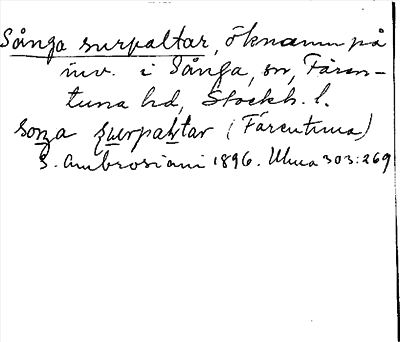 Sånga surpaltar, öknamn på
inv. i Sånga, sn, Fären-
tuna hd, Stockh. l.
soṉa s̱u̱rpaḻtar (Färentuna)
S. Ambrosiani 1896. Ulma 303:269